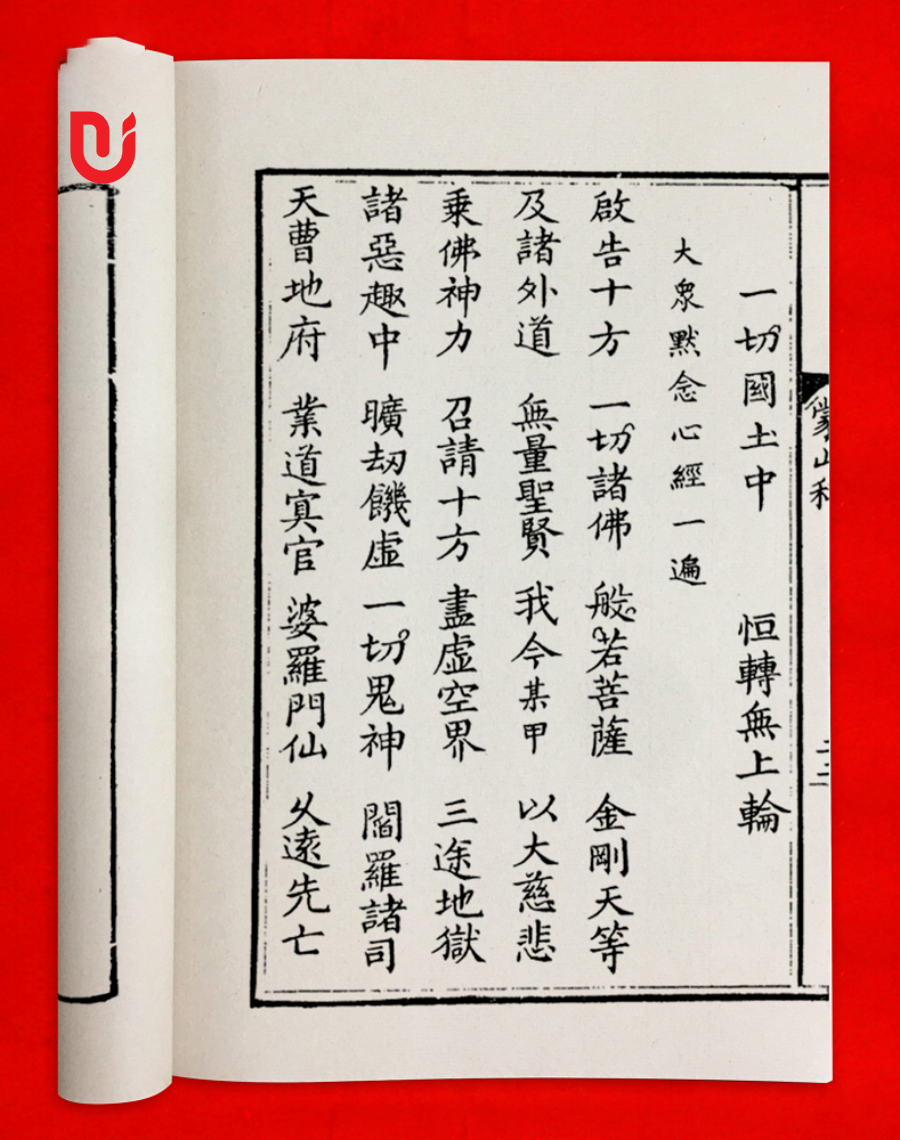 一切國土中 恒轉無上輪
大衆默念心經一遍
啟告十方 一切諸佛 般若菩薩 金剛天等
及諸外道 無量聖賢 我今某甲 以大慈悲
乗佛神力 召請十方 盡虛空界 三途地獄
諸惡趣中 曠刼饑虛 一切鬼神 閻羅諸司
天曹地府 業道寞官 婆羅門仙 乆遠先亡